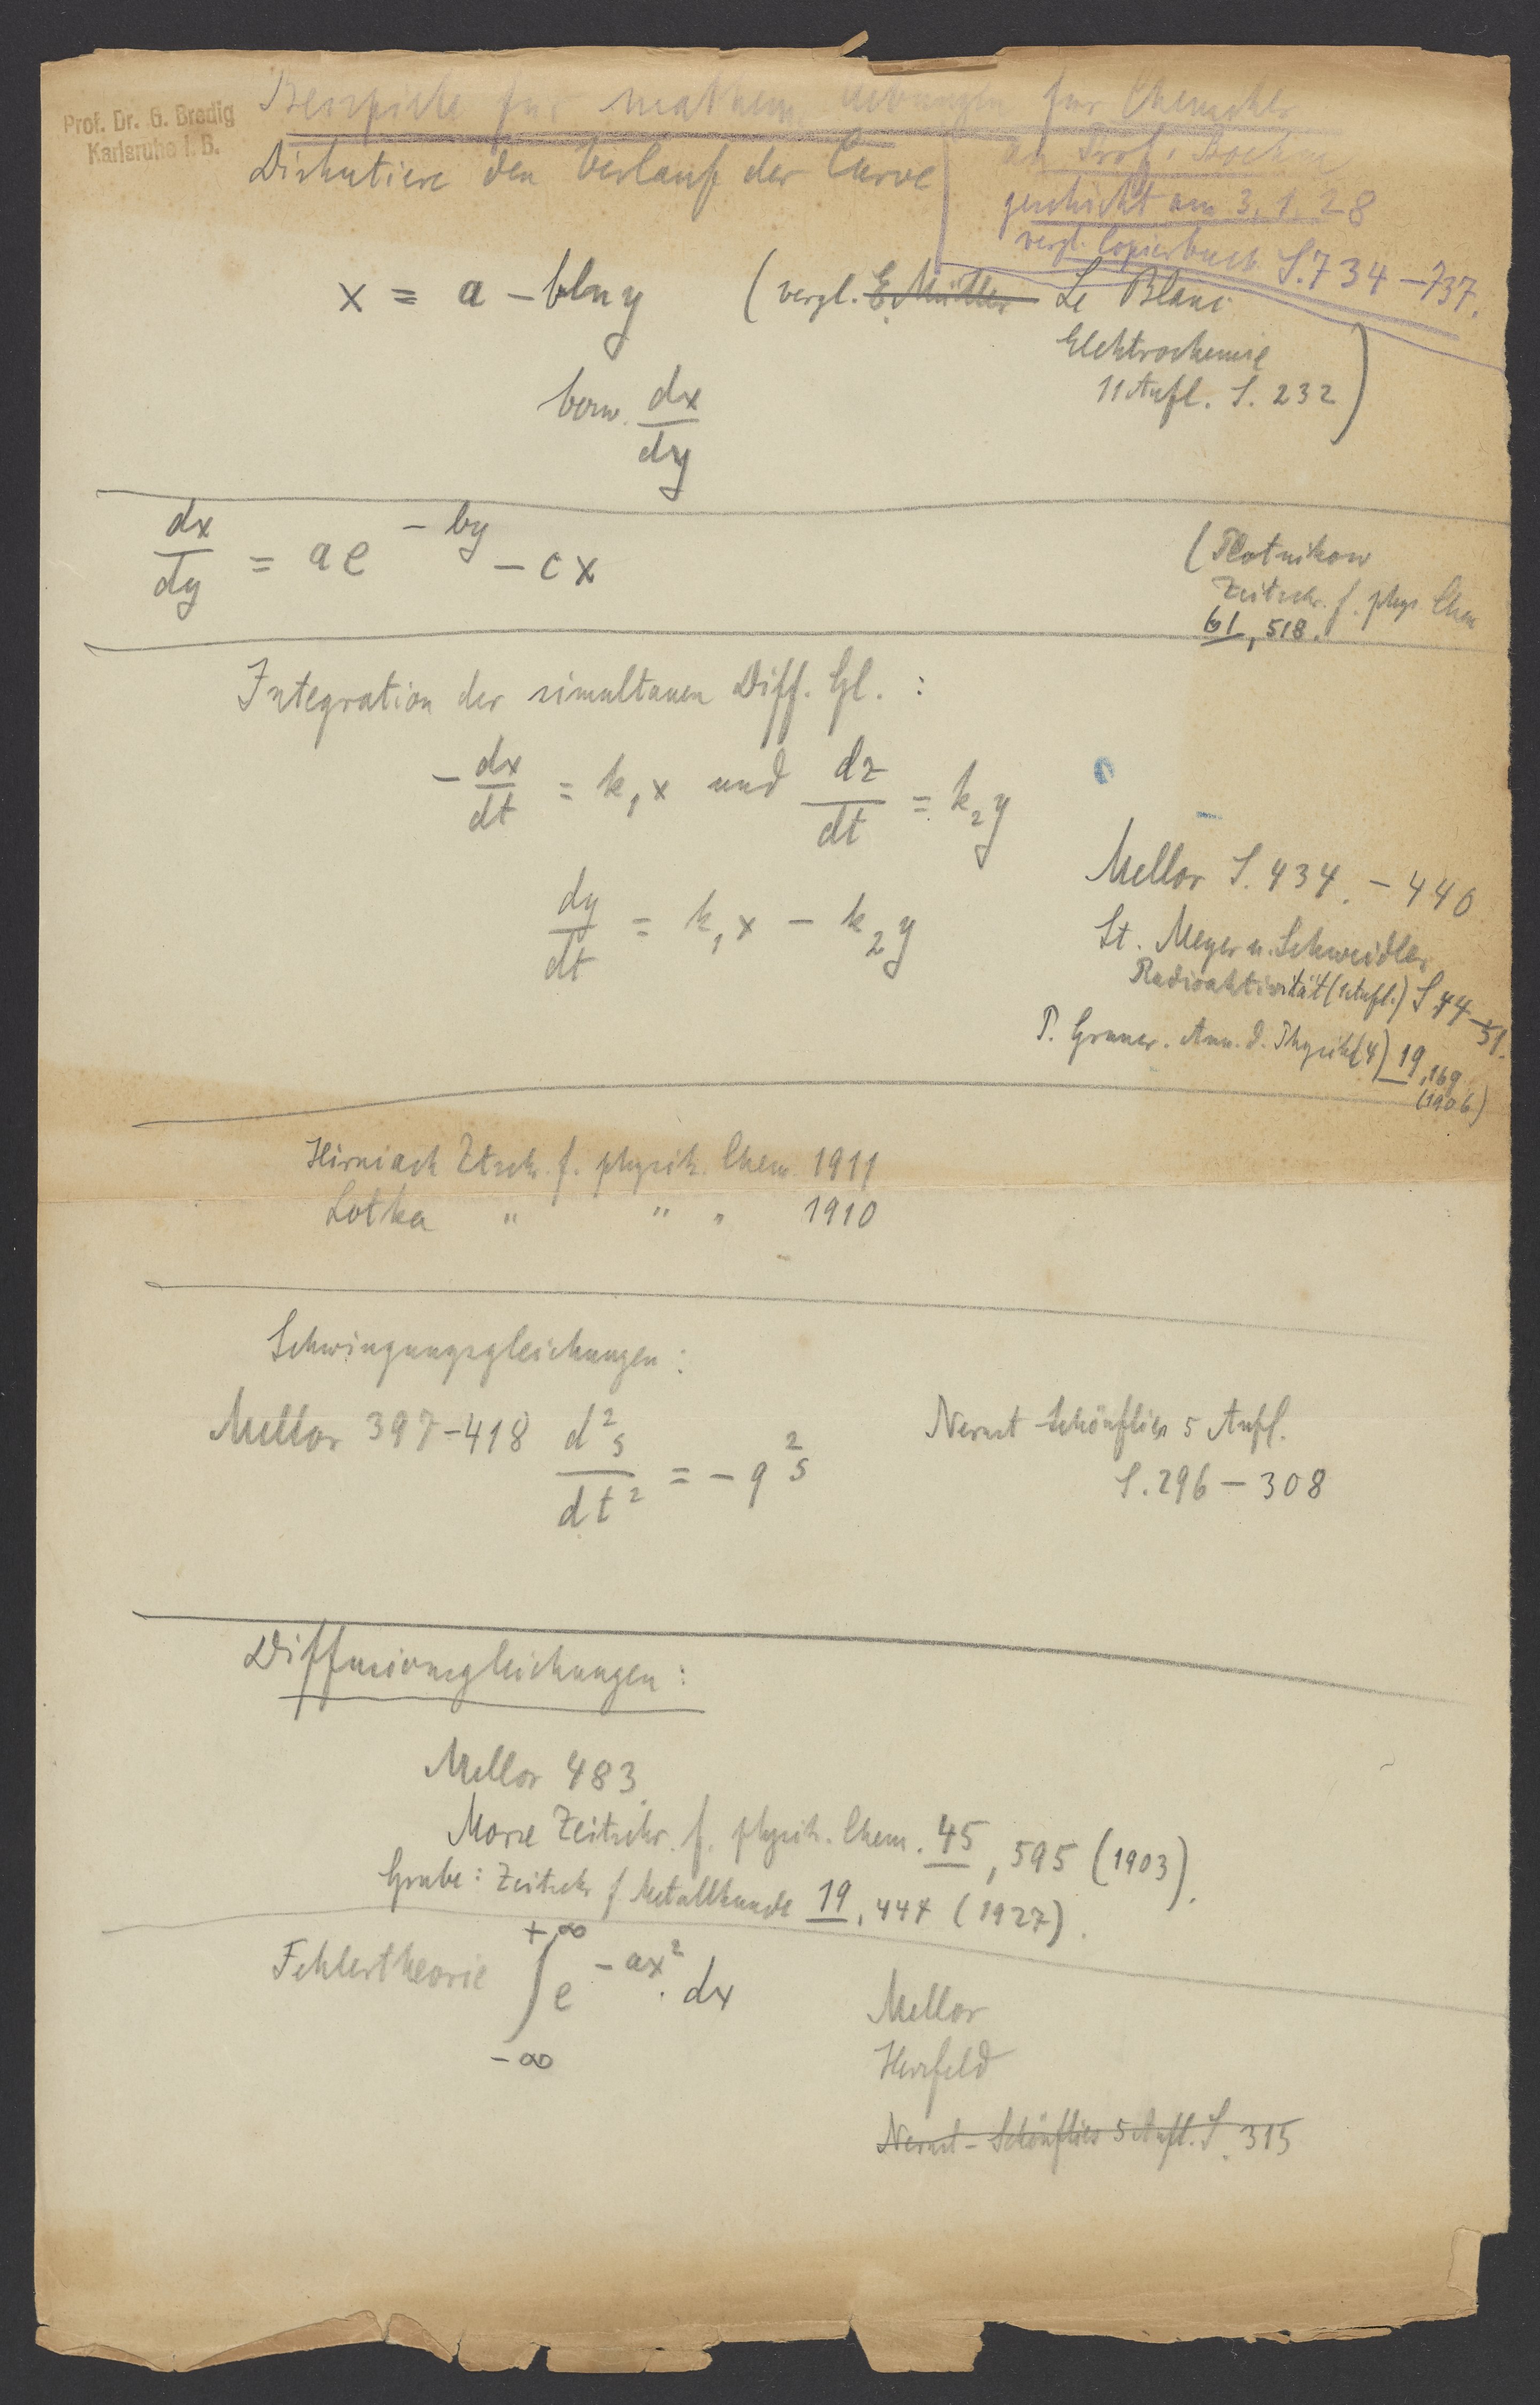 Prof. Dr. G. Bredig
Karlsruhe i. B.
Beispiele für mathem. Uebungen für Chemiker
an Prof. Boehm
geschickt am 3. 1. 28
vergl. Copierbuch S. 734–737.
Diskutiere den Verlauf der Curve
x = a – b ln y (vergl. E. Müller Le Blanc
Elektrochemie
11 Aufl. S. 232)
bezw. dx/dy
dx/dy = a e^{-by} – c x
(Plotnikow
Zeitschr. f. phys. Chem
61, 518.
Integration der simultanen Diff. Gl. :
– dx/dt = k₁x und dz/dt = k₂y
dy/dt = k₁x – k₂y
Mellor S. 434. – 440
St. Meyer u. Schweidler
Radioaktivität (1 Aufl.) S 44–51.
P. Gruner. Ann. d. Physik (4) 19, 169
(1906)
Hirniach Ztsch. f. physik. Chem. 1911
Lotka " " " 1910
Schwingungsgleichungen :
Mellor 397–418 d²s/dt² = – q²s
Nernst–Schönflies 5 Aufl.
S. 296 – 308
Diffusionsgleichungen :
Mellor 483.
Morse Zeitschr. f. physik. Chem. 45, 595 (1903).
Grube: Zeitschr f Metallkunde 19, 447 (1927).
Fehlertheorie ∫_{-∞}^{+∞} e^{-ax²} . dx
Mellor
Herzfeld
Nernst – Schönflies 5 Aufl. S. 315